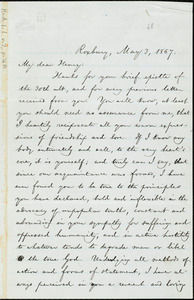 Roxbury, May 3, 1867.
My dear Henry:
Thanks for your brief epistle
of the 30th ult., and for every previous letter
received from you. You will know, at least
you should need no assurance from me, that
I heartily reciprocate all your warm expres-
sions of friendship and love. If I know any
body, intimately and well, to the very heart's
core, it is yourself; and truly can I say, that
since our acquaintance was formed, I have
ever found you to be true to the principles
you have declared, bold and inflexible in the
advocacy of unpopular truths, constant and
abounding in your sympathy for suffering and
oppressed humanity, and in active hostility
to whatever tends to degrade man or libel
the true God. Underlying all methods of
action and forms of statement, I have al-
ways perceived in you a reverent and loving